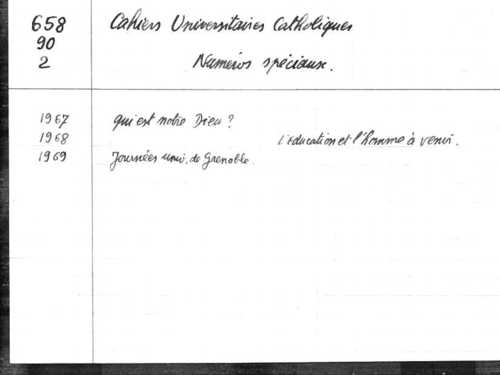 658 Cahiers Universitaires Catholiques
90
2 Numéros spéciaux.
1967 Qui est notre Dieu ?
1968 L'éducation et l'homme à venir.
1969 Journées univ. de Grenoble.